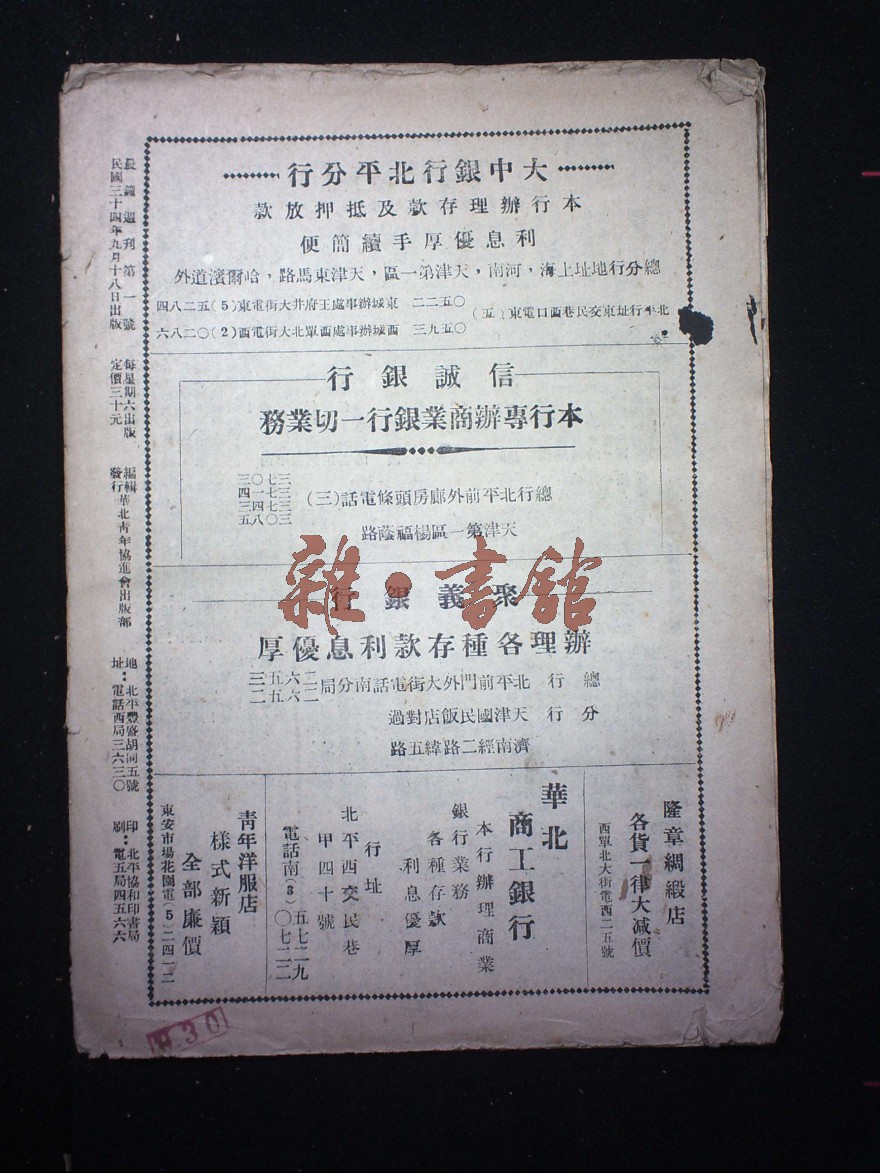 大中銀行北平分行
本行辦理存款及抵押放款
利息優厚手續簡便
總分行地址上海，河南，天津第一區，天津東馬路，哈爾濱道外
北平行址東交民巷西口電東（五）
〇五二二
〇五九三
東城辦事處王府井大街電東（5）五二八四
西城辦事處西單北大街電西（2）〇二八六
信誠銀行
本行專辦商業銀行一切業務
總行北平前外廊房頭條電話（三）
三七〇三
三七一四
三七四三
三〇八五
天津第一區楊福蔭路
聚義銀行
辦理各種存款利息優厚
總行 北平前門外大街電話南分局
二六五三
二六五二
分行 天津國民飯店對過
濟南經二路緯五路
隆章綢緞店
各貨一律大減價
西單北大街電西二五號
華北
商工銀行
本行辦理商業
銀行業務
各種存款
利息優厚
行址
北平西交民巷
甲四十號
電話南（3）
五七二九
〇七二二
青年洋服店
樣式新穎
全部廉價
東安市場花園電（5）二四一二
晨鐘週刊第一號
民國三十四年九月十八日出版
每星期六出版
定價三十元
編輯
發行
華北青年協進會出版部
地址：
北平豐盛胡同五號
電話西局三六三〇
印刷：
北平協和印書局
電五局四五六六
雜·書館
930